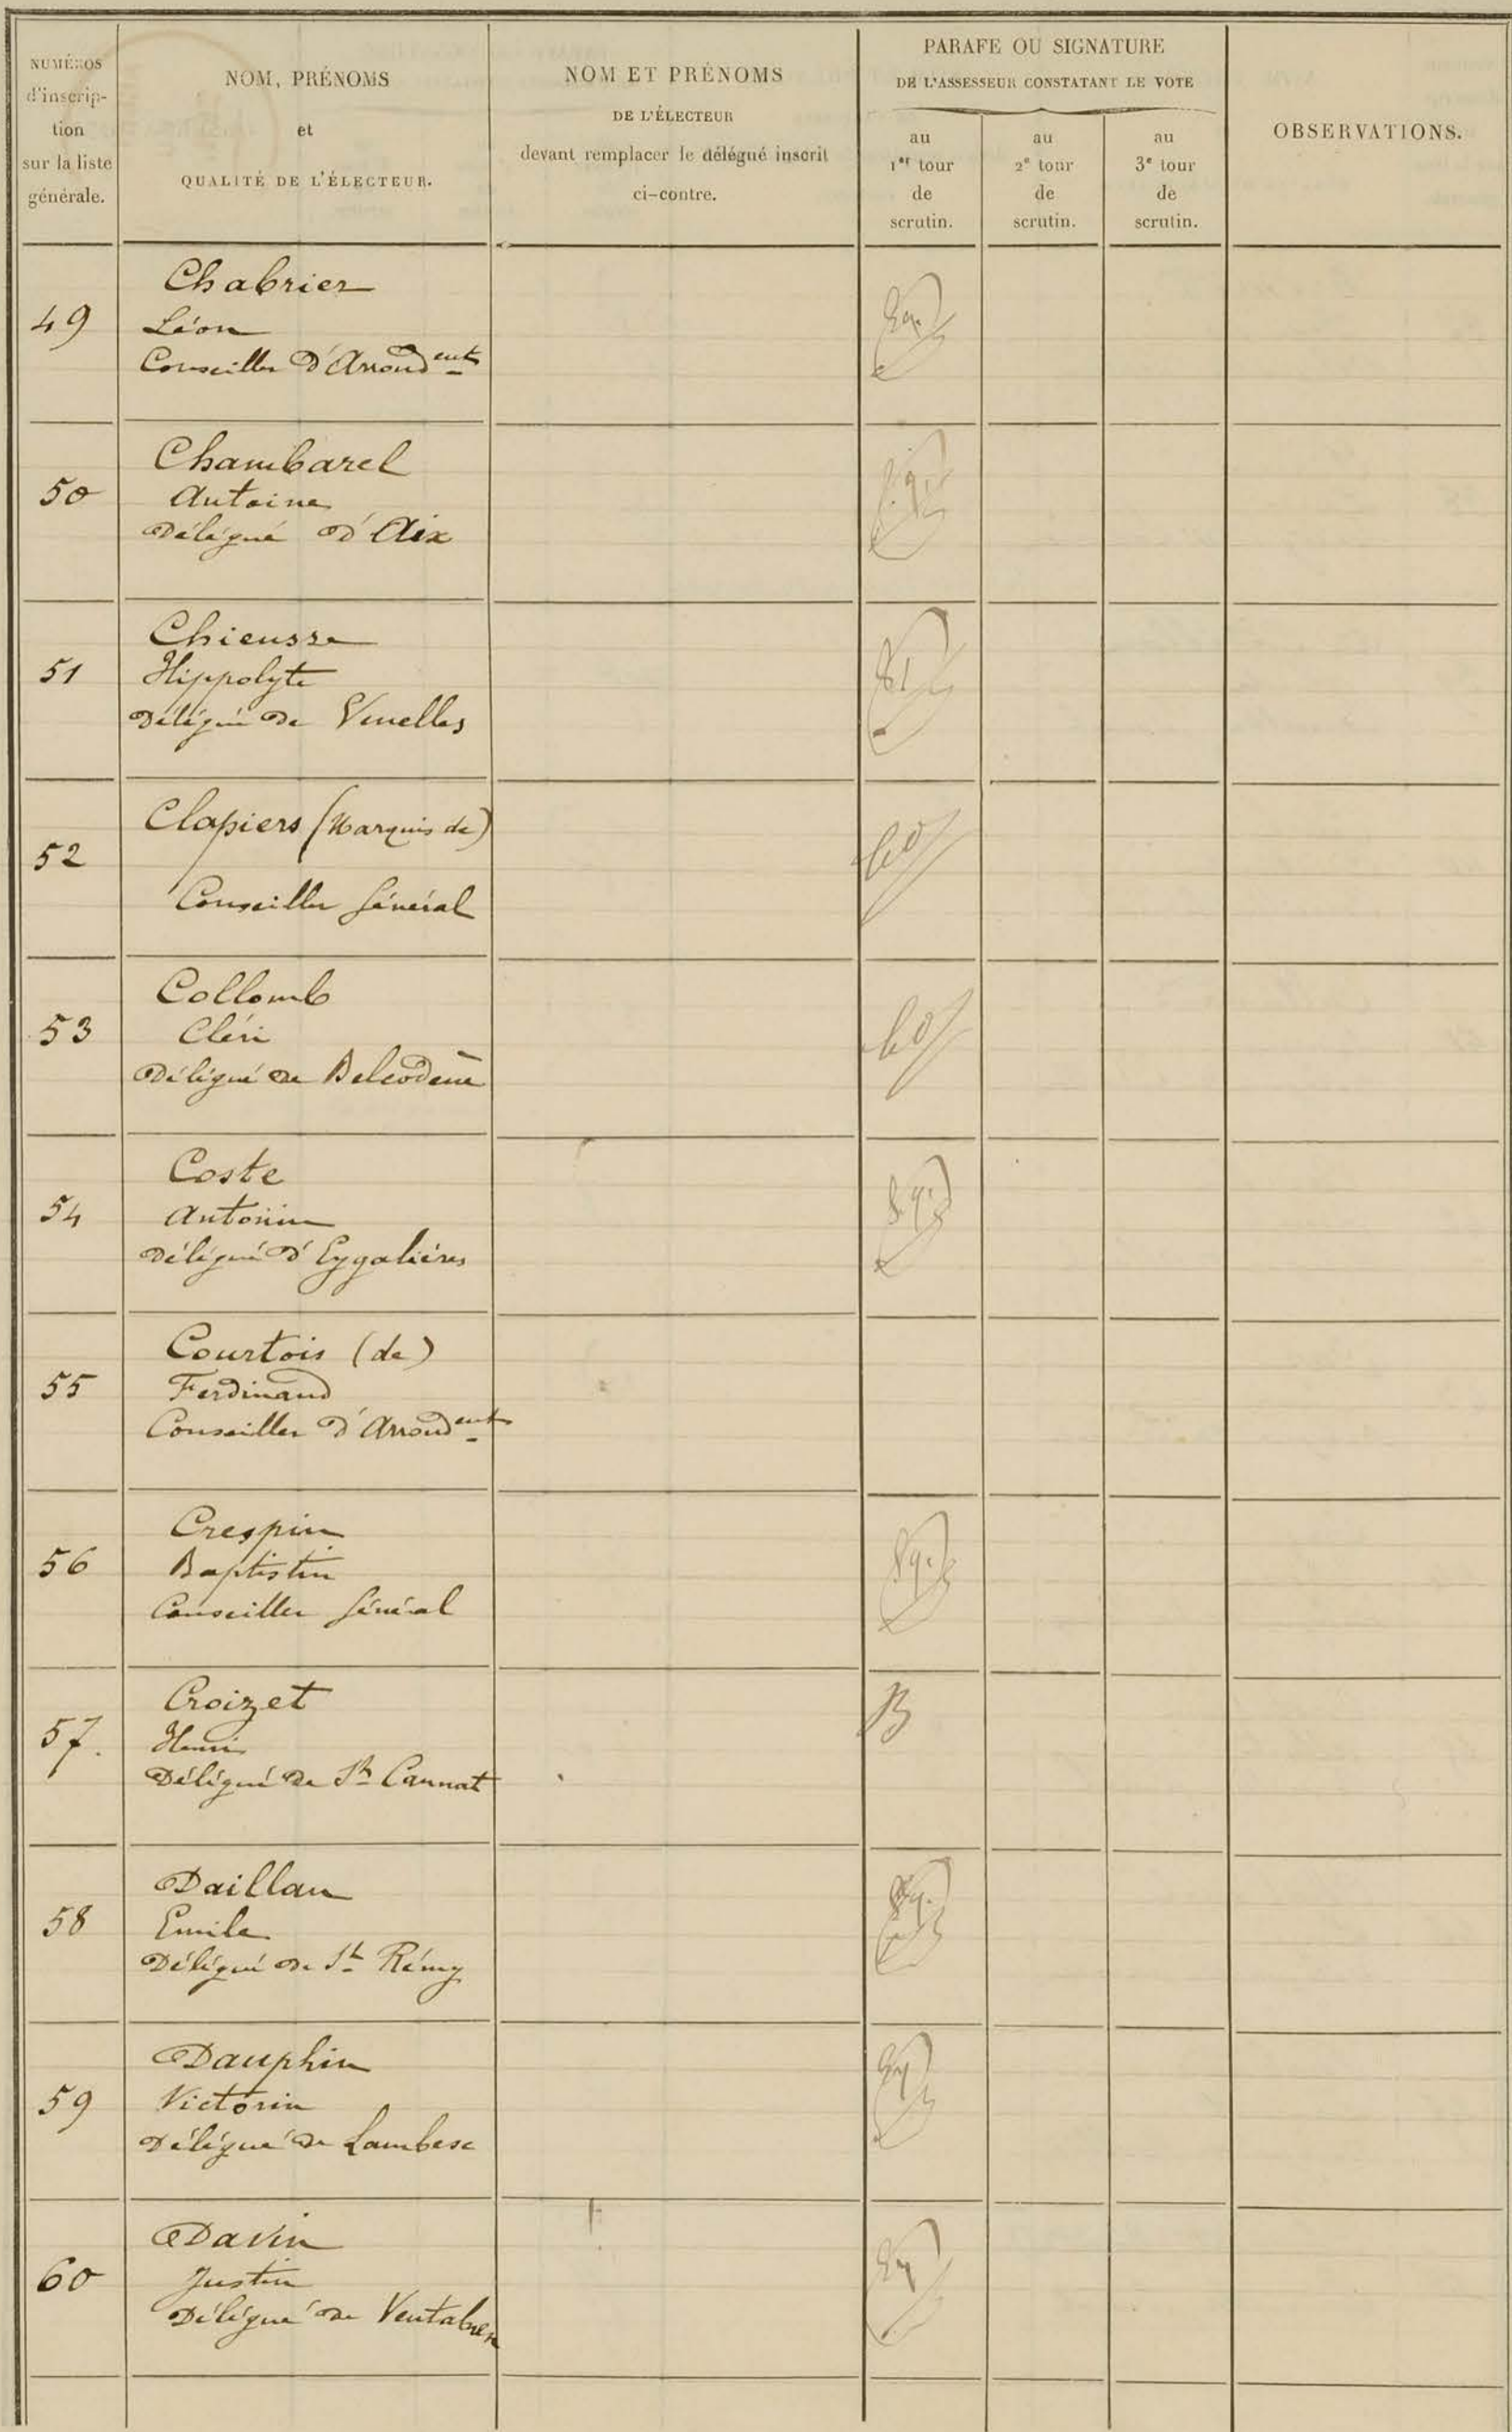 NUMÉROS
d'inscrip-
tion
sur la liste
générale.
NOM, PRÉNOMS
et
QUALITÉ DE L'ÉLECTEUR.
NOM ET PRÉNOMS
DE L'ÉLECTEUR
devant remplacer le délégué inscrit
ci-contre.
PARAFE OU SIGNATURE
DE L'ASSESSEUR CONSTATANT LE VOTE
au
1er tour
de
scrutin.
au
2e tour
de
scrutin.
au
3e tour
de
scrutin.
OBSERVATIONS.
49
Chabrier
Léon
Conseiller d'Arrondent
50
Chambarel
Antoine
Délégué d'Aix
51
Chieusse
Hippolyte
Délégué de Venelles
52
Clapiers (Marquis de)
Conseiller Général
53
Collomb
Cléri
Délégué de Belcodène
54
Coste
Antonin
Délégué d'Eygalières
55
Courtois (de)
Ferdinand
Conseiller d'Arrondent
56
Crespin
Baptistin
Conseiller Général
57.
Croizet
Henri
Délégué de St Cannat
B
58
Daillan
Emile
Délégué de St Rémy
59
Dauphin
Victorin
Délégué de Lambesc
60
Davin
Justin
Délégué de Ventabren